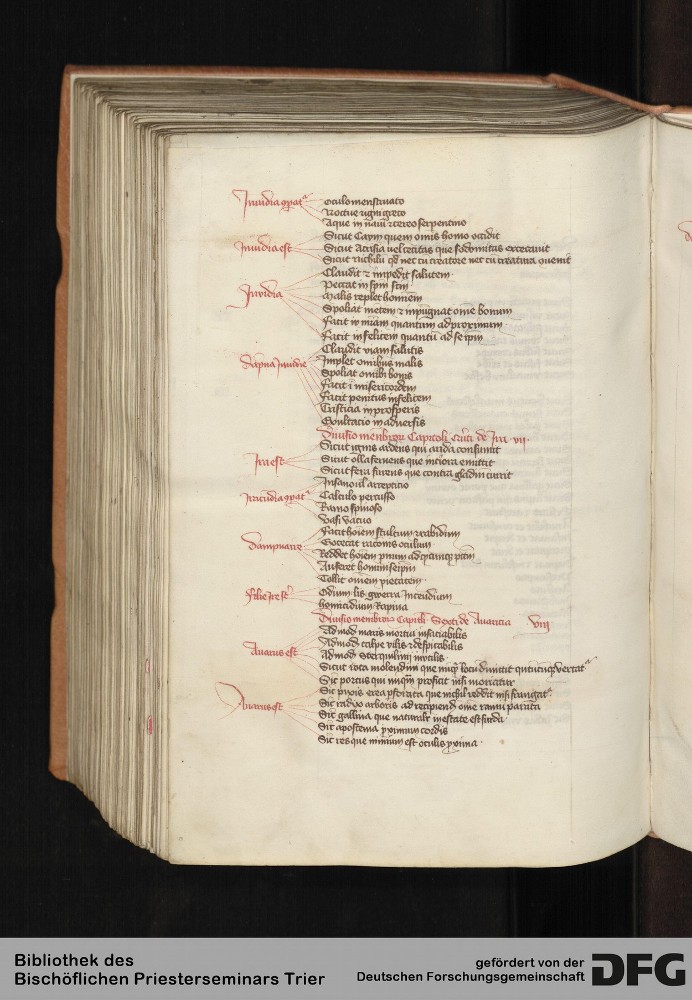 Invidia
oculo menstruato
Noctue
Aque in et ereo serpentino
Invidia est
Sicut Caym quem omnis homo occidit
Sicut Acrisia vel cecitas que sodomitas excecavit
Sicut nichilum qd nec cu creatore nec cu creatura quenit
Invidia
Claudit et impedit salutem
Peccat in spm scm
Malis replet hominem
Spoliat mentem et inpugnat omne bonum
Facit in miam quantum ad proximum
Facit infelicem quantu ad seipm
Dampna Invidie
Claudit viam salutis
Implet omnibus malis
Spoliat omnibus bonis
Facit inmisericordem
Facit penitus infelicem
Tristicia in prosperis
Exultacio in adversis
Divisio membrorum Capitoli de Ira vii
Ira est
Sicut ignis ardens qui arida consumit
Sicut olla fervens que interiora emittit
Sicut fera furens que contra gladium currit
Insano vel arrepticio
Calculo percusso
Ramo spinoso
Vasi vacuo
Dampna ire
Facit hoiem stultum et rabidum
Excecat racionis oculum
Reddit hoiem
Aufert homini seipm
Tollit omnem pietatem
Filie ire st
Odium lis gwerra Incendium
homicidium Rapina
Divisio membrorum Capituli Sexti de Avaricia viii
Avarus est
Admodum maris mortui insaciabilis
Admodum talpe vilis et despicabilis
Admodum Sterquilinii inutilis
Sicut rota molendini que nunquam locum dimittit quantumcumque vertatur
Avarus est
Sic porcus qui nunquam proficit nisi moriatur
Sic pixis erea perforata que nichil reddit nisi frangatur
Sic radix arboris ad recipiendum omne ramum parata
Sic gallina que naturaliter in estate est surda
Sic apostema proximum cordis
Sic res que nimium est oculis proxima
Bibliothek des
Bischöflichen Priesterseminars Trier
gefördert von der
Deutschen Forschungsgemeinschaft
DFG